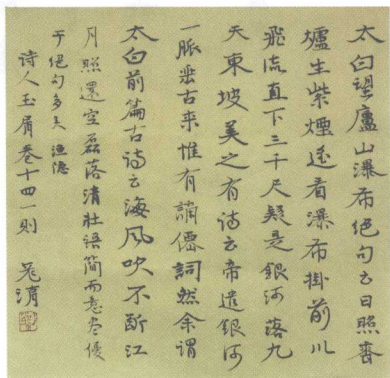 太白望廬山瀑布絕句云日照香
爐生紫煙遙看瀑布掛前川
飛流直下三千尺疑是銀河落九
天東坡美之有詩云帝遣銀河
一脈垂古來惟有謫僊詞然余謂
太白前篇古詩云海風吹不斷江
月照還空磊落清壯語簡而意盡優
于絕句多矣漁隱
诗人玉屑卷十四一則